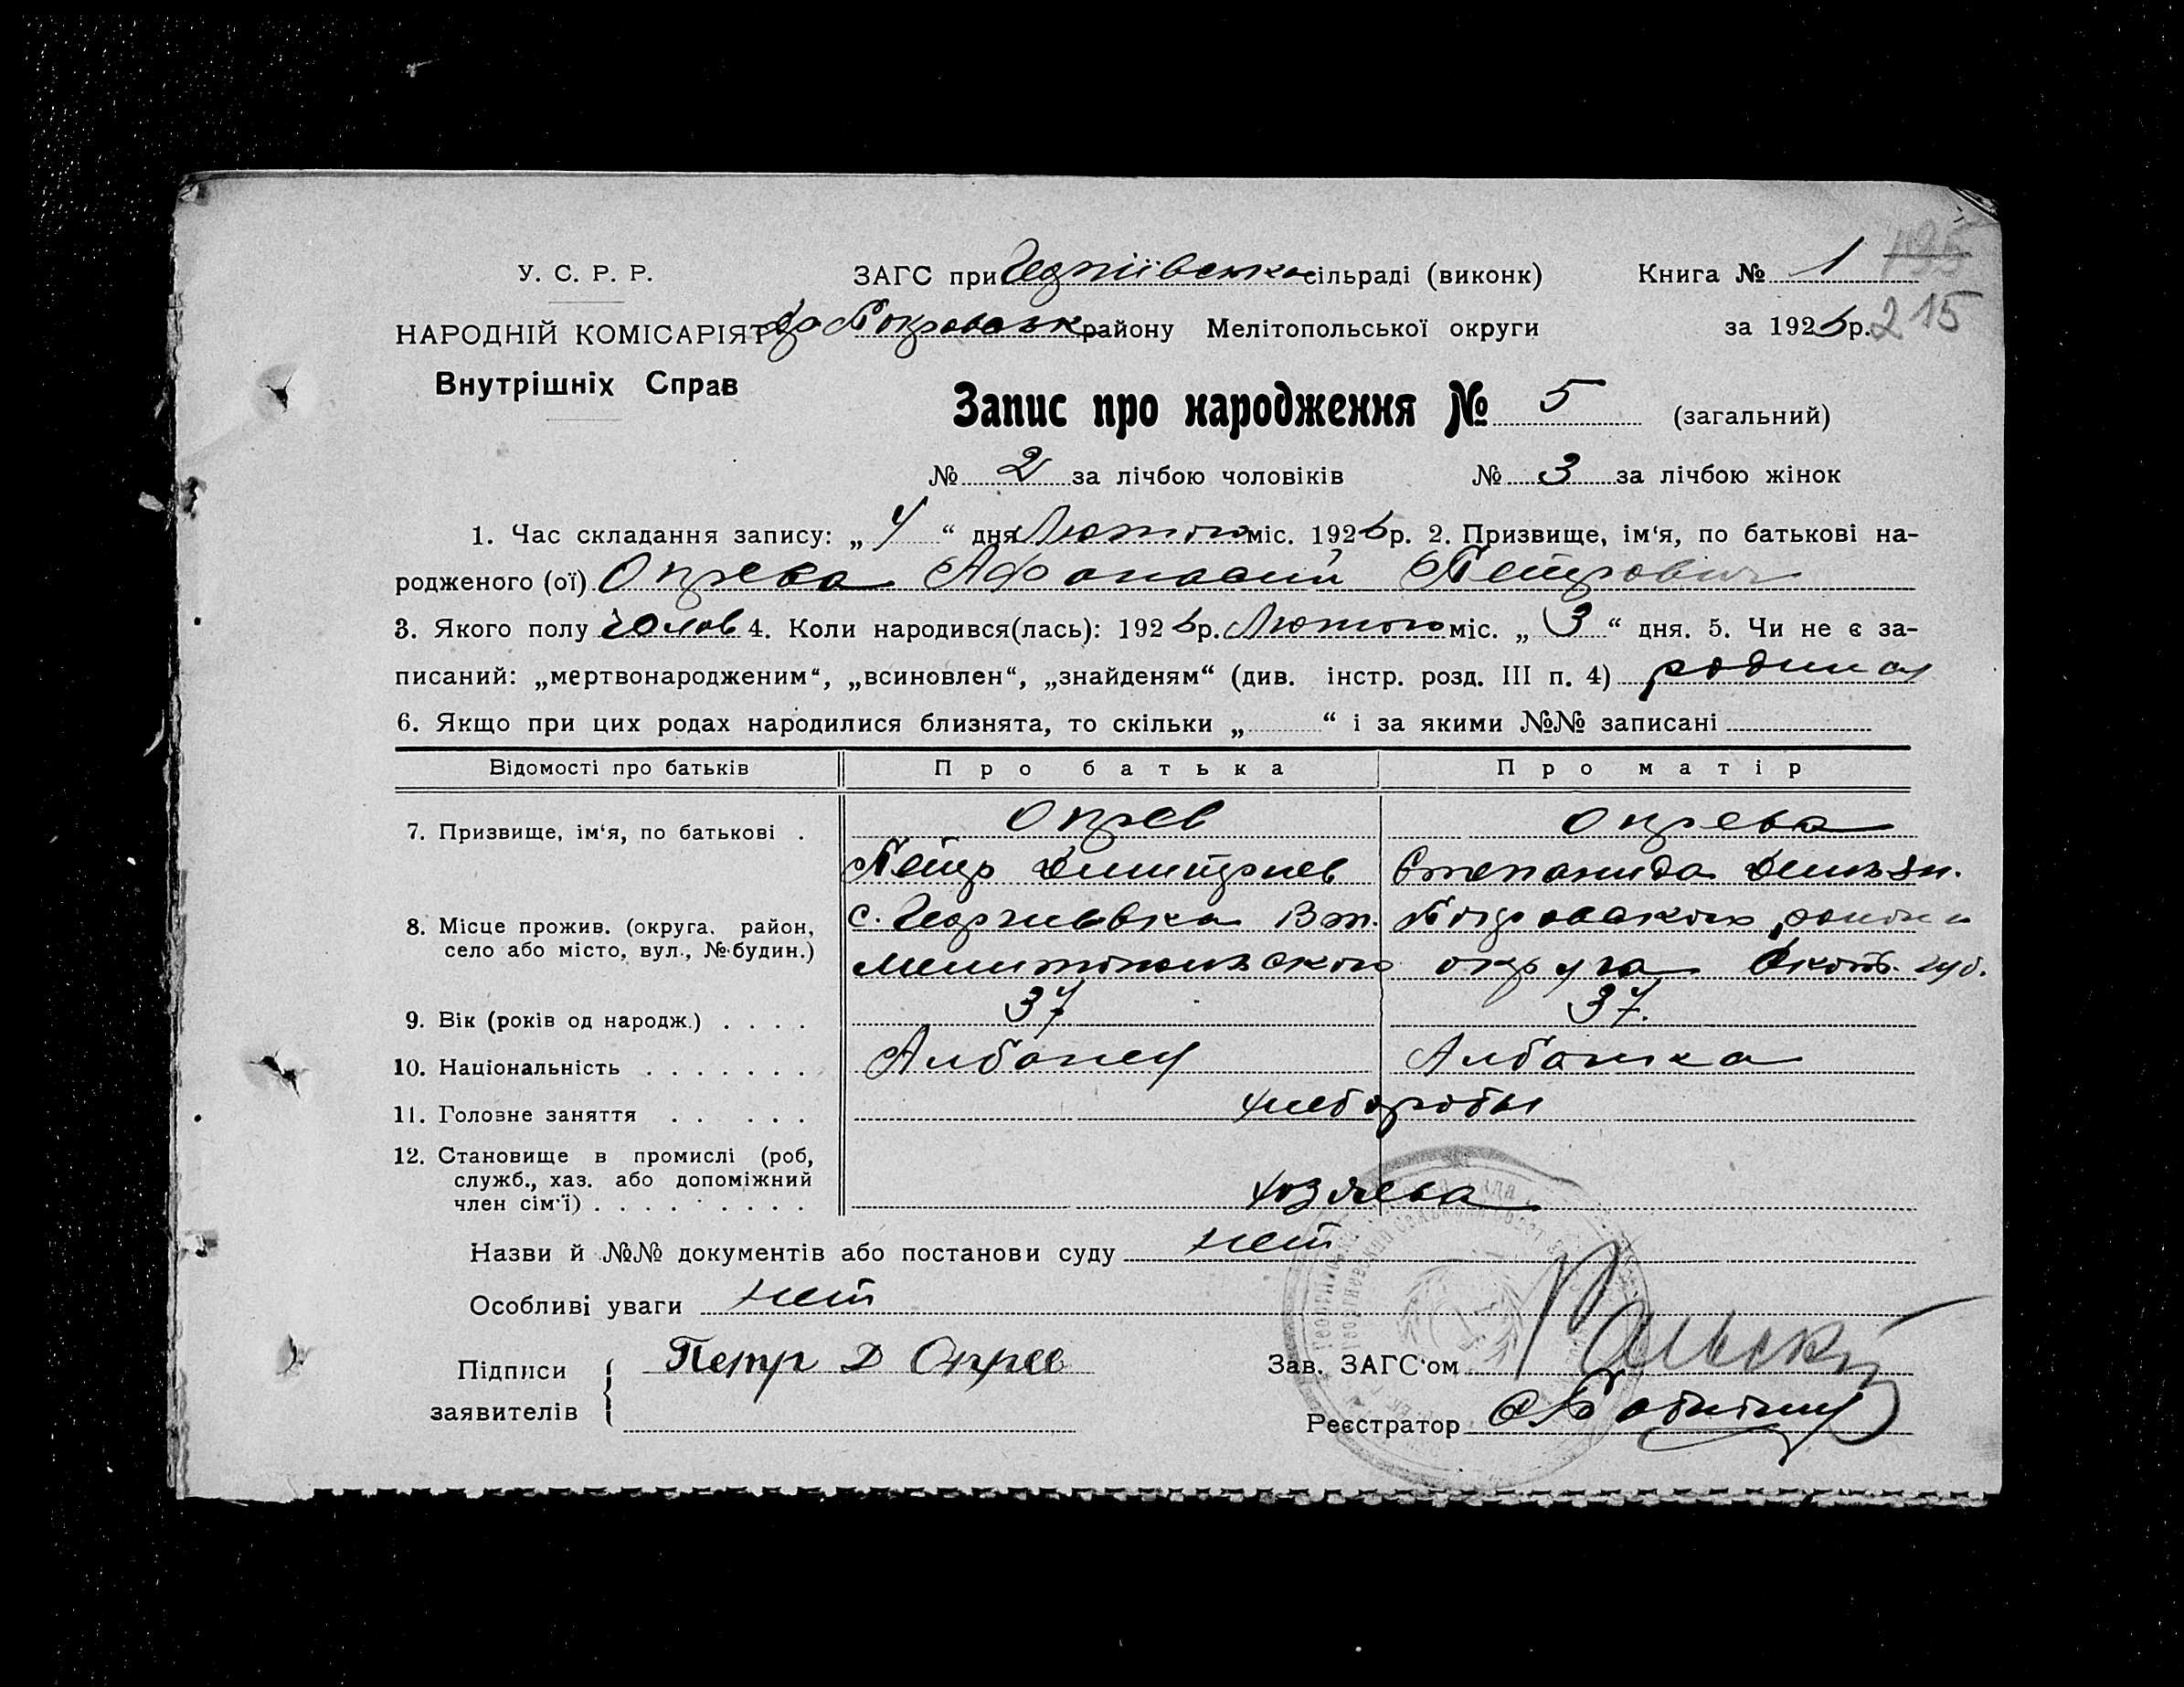 У. С. Р. Р.
НАРОДНІЙ КОМІСАРІЯТ
Внутрішніх Справ
ЗАГС при Георгіївська сільраді (виконк)
Покровськ району Мелітопольської округи
Книга № 1 195
за 192 р. 215
Запис про народження № 5 (загальний)
№ 2 за лічбою чоловіків № 3 за лічбою жінок
1. Час складання запису: „ 4 “ дня Лютого міс. 192 р. 2. Призвище, ім‘я, по батькові на-
родженого (ої) Опрева Афанасий Петрович
3. Якого полу чолов 4. Коли народився(лась): 192 р. Лютого міс. „ 3 “ дня. 5. Чи не є за-
писаний: „мертвонародженим“, „всиновлен“, „знайденям“ (див. інстр. розд. III п. 4)
6. Якщо при цих родах народилися близнята, то скільки „ “ і за якими №№ записані
Відомості про батьків Про батька Про матір
7. Призвище, ім‘я, по батькові . Опрев Опрева
Петр Дмитриев Степанида Демьян.
8. Місце прожив. (округа, район, с. Георгиевка Покровского района
село або місто, вул., № будин.) Мелитопольского округа губ.
9. Вік (років од народж.) . . . . 37 37.
10. Національність . . . . . . . Албанец Албанка
11. Головне заняття . . . . . хлеборобы
12. Становище в промислі (роб,
служб., хаз. або допоміжний
член сім‘ї) . . . . . . . . . хозяева
Назви й №№ документів або постанови суду нет
Особливі уваги нет
Підписи
заявителів
Петр Д Опрев
Зав. ЗАГС‘ом
Реєстратор